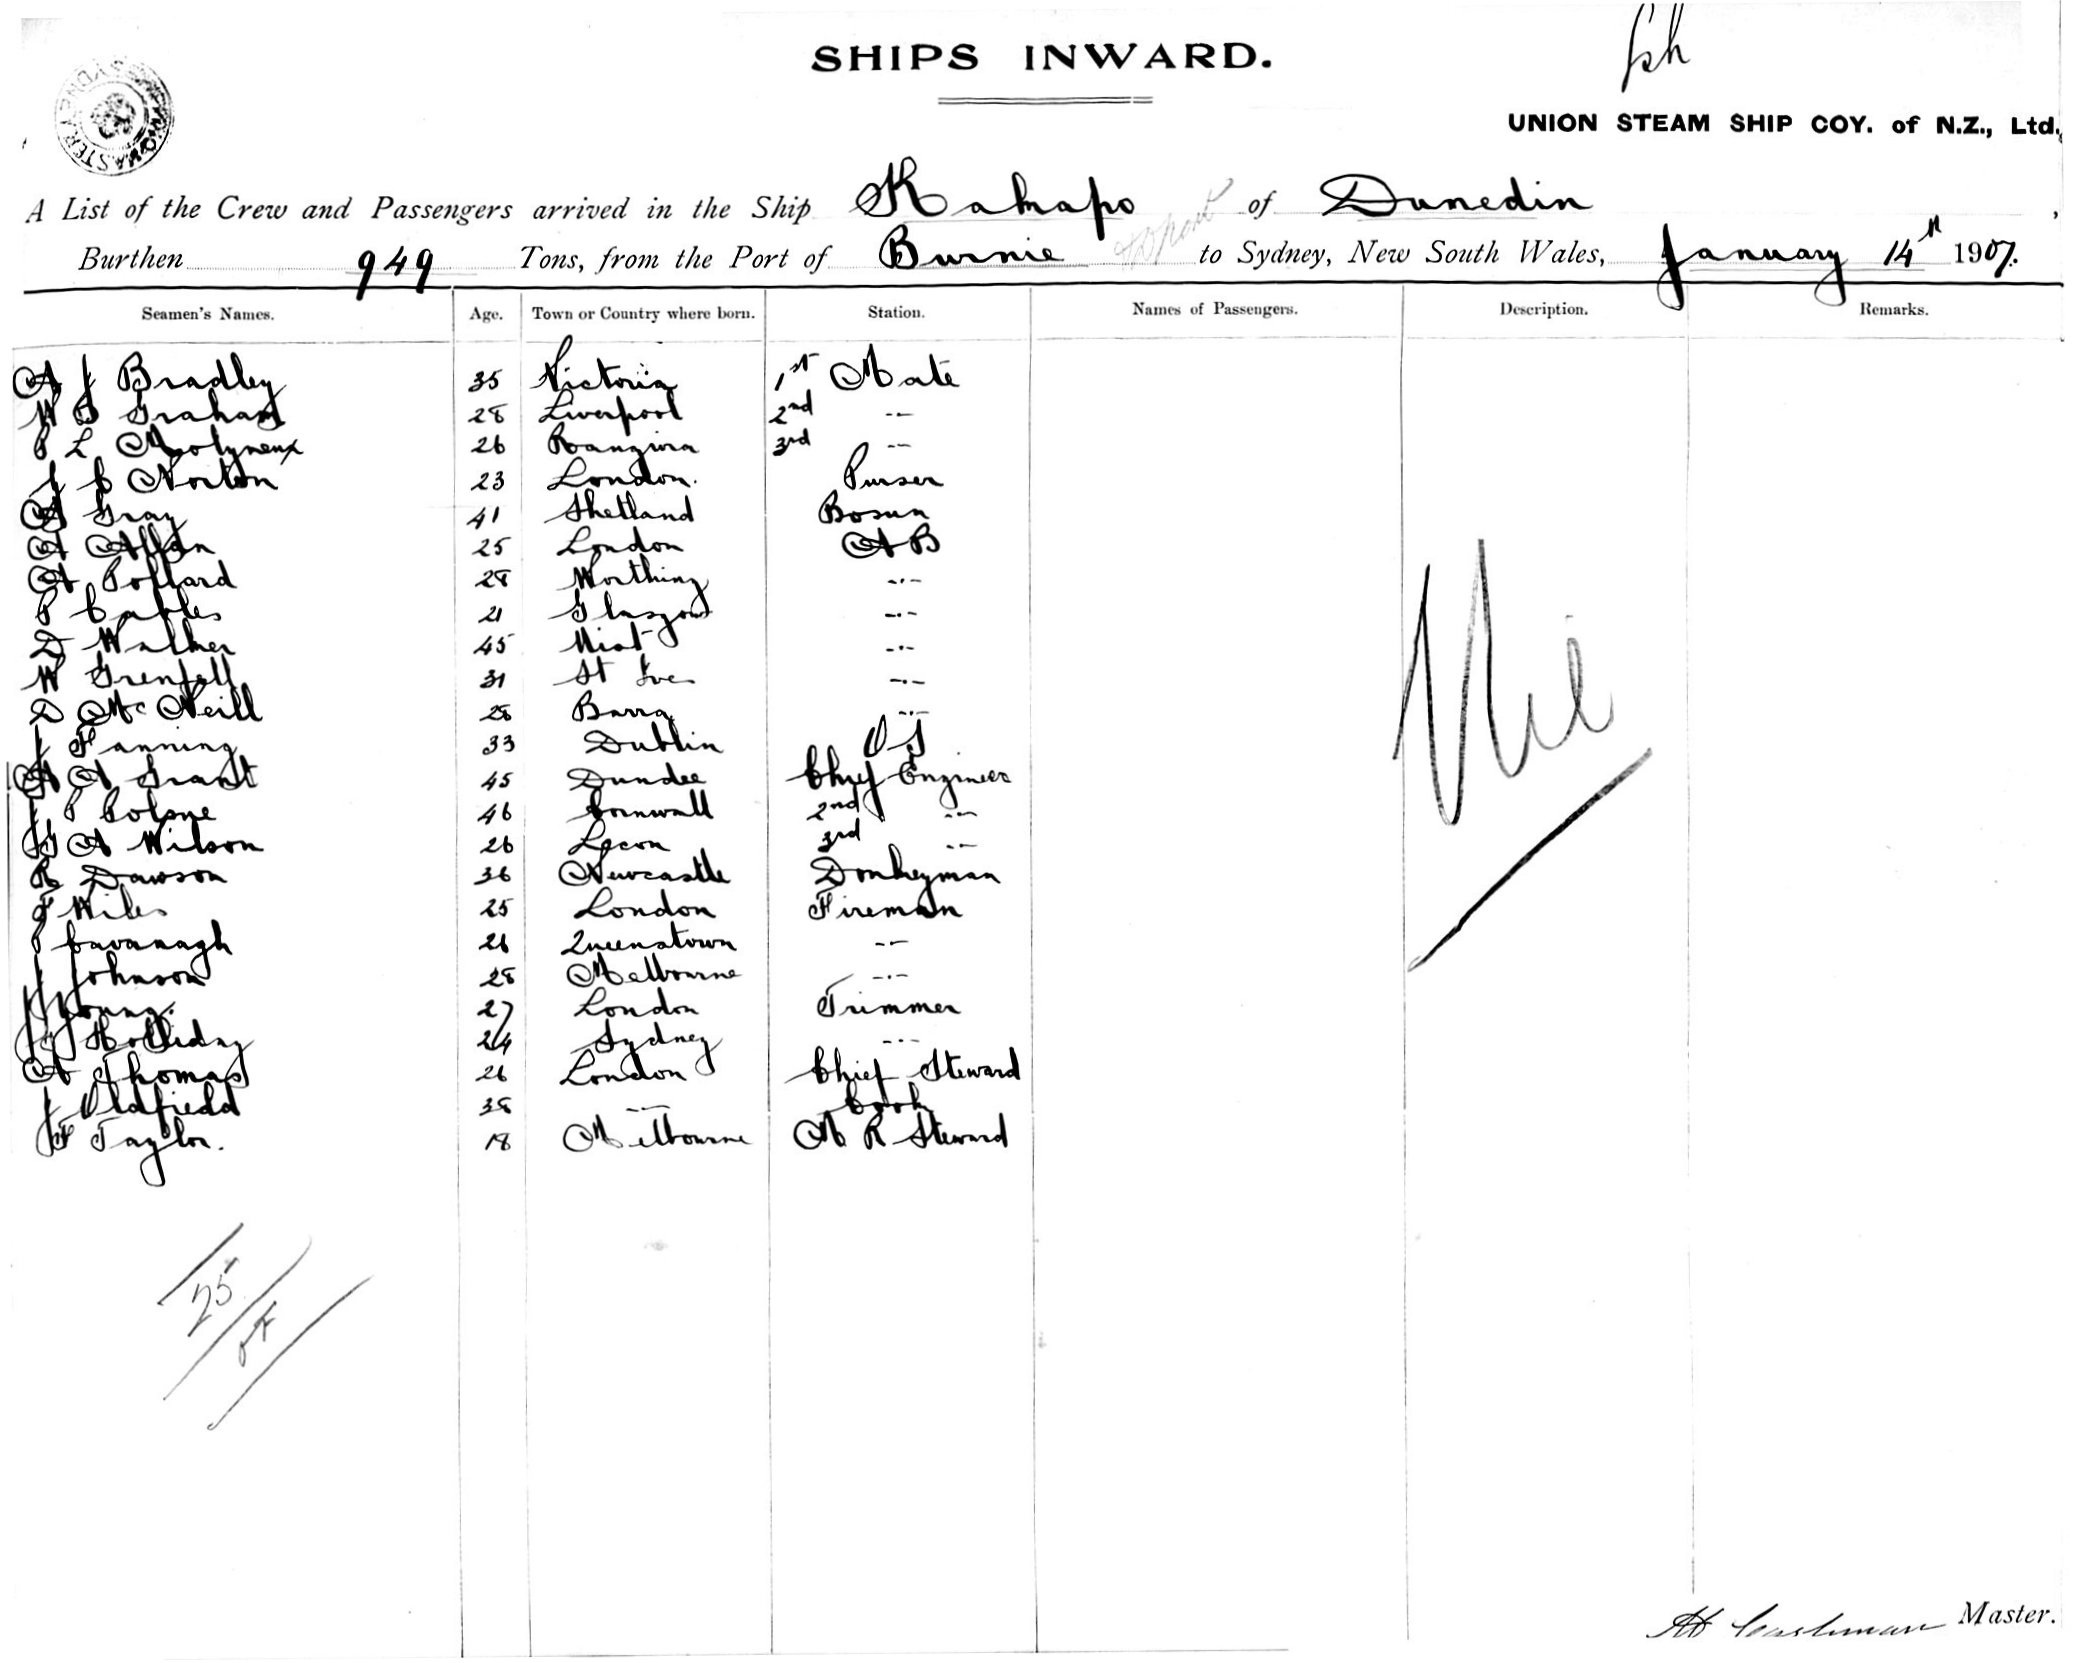 SHIPS INWARD.
UNION STEAM SHIP COY. of N.Z., Ltd.
A List of the Crew and Passengers arrived in the Ship Kakapo of Dunedin,
Burthen 949 Tons, from the Port of Burnie to Sydney, New South Wales, January 14th 1907.
Seamen's Names. Age. Town or Country where born. Station. Names of Passengers. Description. Remarks.
A J Bradley 35 Victoria 1st Mate
W Graham 28 Liverpool 2nd -·-
P L Molyneux 26 Rangiora 3rd -·-
J C Norton 23 London. Purser
A Gray 41 Shetland Bosun
A Allan 25 London A B
A Pollard 28 Worthing -·-
P Cables 21 Glasgow -·-
D Walker 45 -·-
W Grenfell 31 St Ives -·-
D McNeill 28 Barra -·-
J Fanning 33 Dublin O S
A A Grant 45 Dundee Chief Engineer
J P 46 Cornwall 2nd -·-
G A Wilson 26 3rd -·-
R Dawson 36 Newcastle Donkeyman
F Wiles 25 London Fireman
P Cavanagh 26 Queenstown -·-
J Johnson 28 Melbourne -·-
J Young. 27 London Trimmer
Holliday 24 Sydney -·-
A Thomas 26 London Chief Steward
J Oldfield 38 -·- Cook
F Taylor. 18 Melbourne M R Steward
Nil
25
Master.